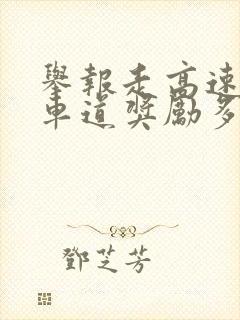 舉報走高速
車道獎勵多
鄧芝芳